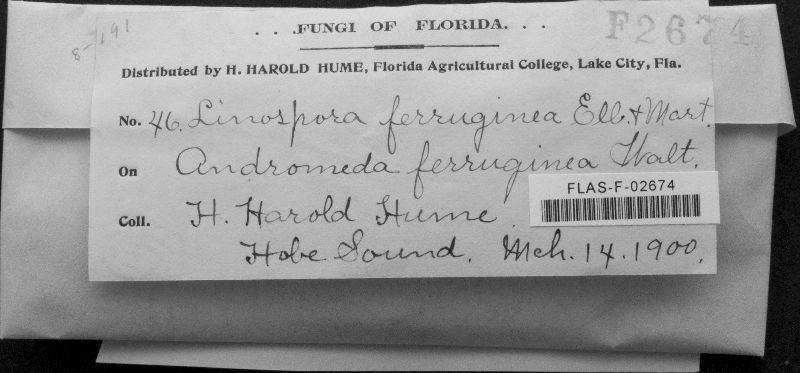 8-7/91
. . .FUNGI OF FLORIDA. . .
F2674
Distributed by H. HAROLD HUME, Florida Agricultural College, Lake City, Fla.
No. 46. Linospora ferruginea Ell. & Mart.
On Andromeda ferruginea Walt.
FLAS-F-02674
Coll. H. Harold Hume
Hobe Sound. Mch. 14. 1900.